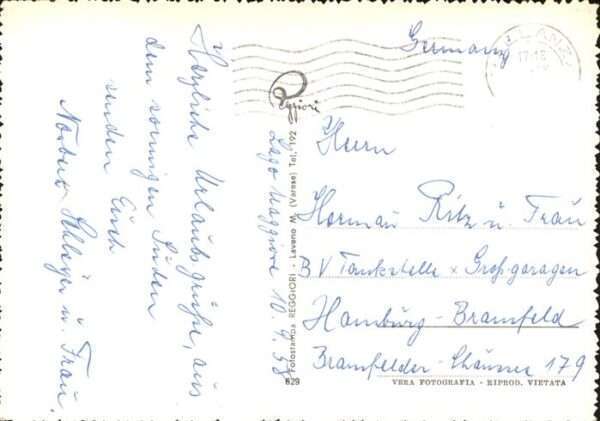 Herzliche Urlaubsgrüße, aus
dem sonnigen Süden
senden Euch
Norbert u. Frau.
Lago Maggiore 10.9.58
Reggiori
Fotostampa REGGIORI - Laveno M. (Varese) Tel. 192
829
Germany
17-18
Herrn
Herman Ritz u. Frau
BV Tankstelle x Großgaragen
Hamburg-Bramfeld
Bramfelder-Chaussee 179
VERA FOTOGRAFIA - RIPROD. VIETATA